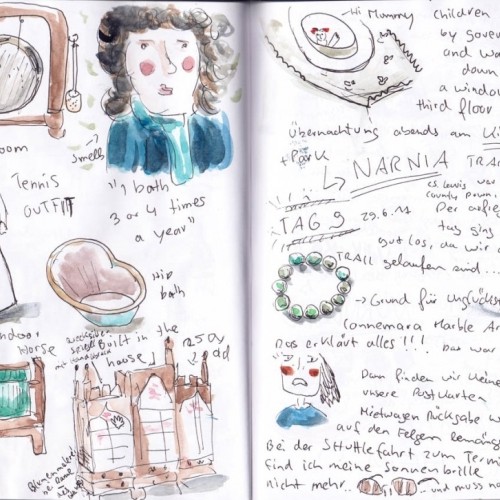 oom
Tennis
OUTFIT
ndoor
Horse
smells
"1 bath
3 or 4 times
a year"
Hip
bath
Built in the
house
1250
ad
Hi Mummy
children
by gover
and wa
down
a window
third floor
Übernachtung abends am
+ Park
NARNIA TRAI
CS. Lewis war
County Down
TAG 9 29.6.11
Der
tag ging
gut los, da wir d
TRAIL
gelaufen sind...
→ Grund für unglückst
Connemara Marble Ar
Das erklärt alles!!!
Dann finden wir kleine
unsere Postkarten
Mietwagen Rückgabe w
auf den Felgen
Bei der Shuttlefahrt zum Termi
find ich meine Sonnenbrille
nicht mehr.
und muss no